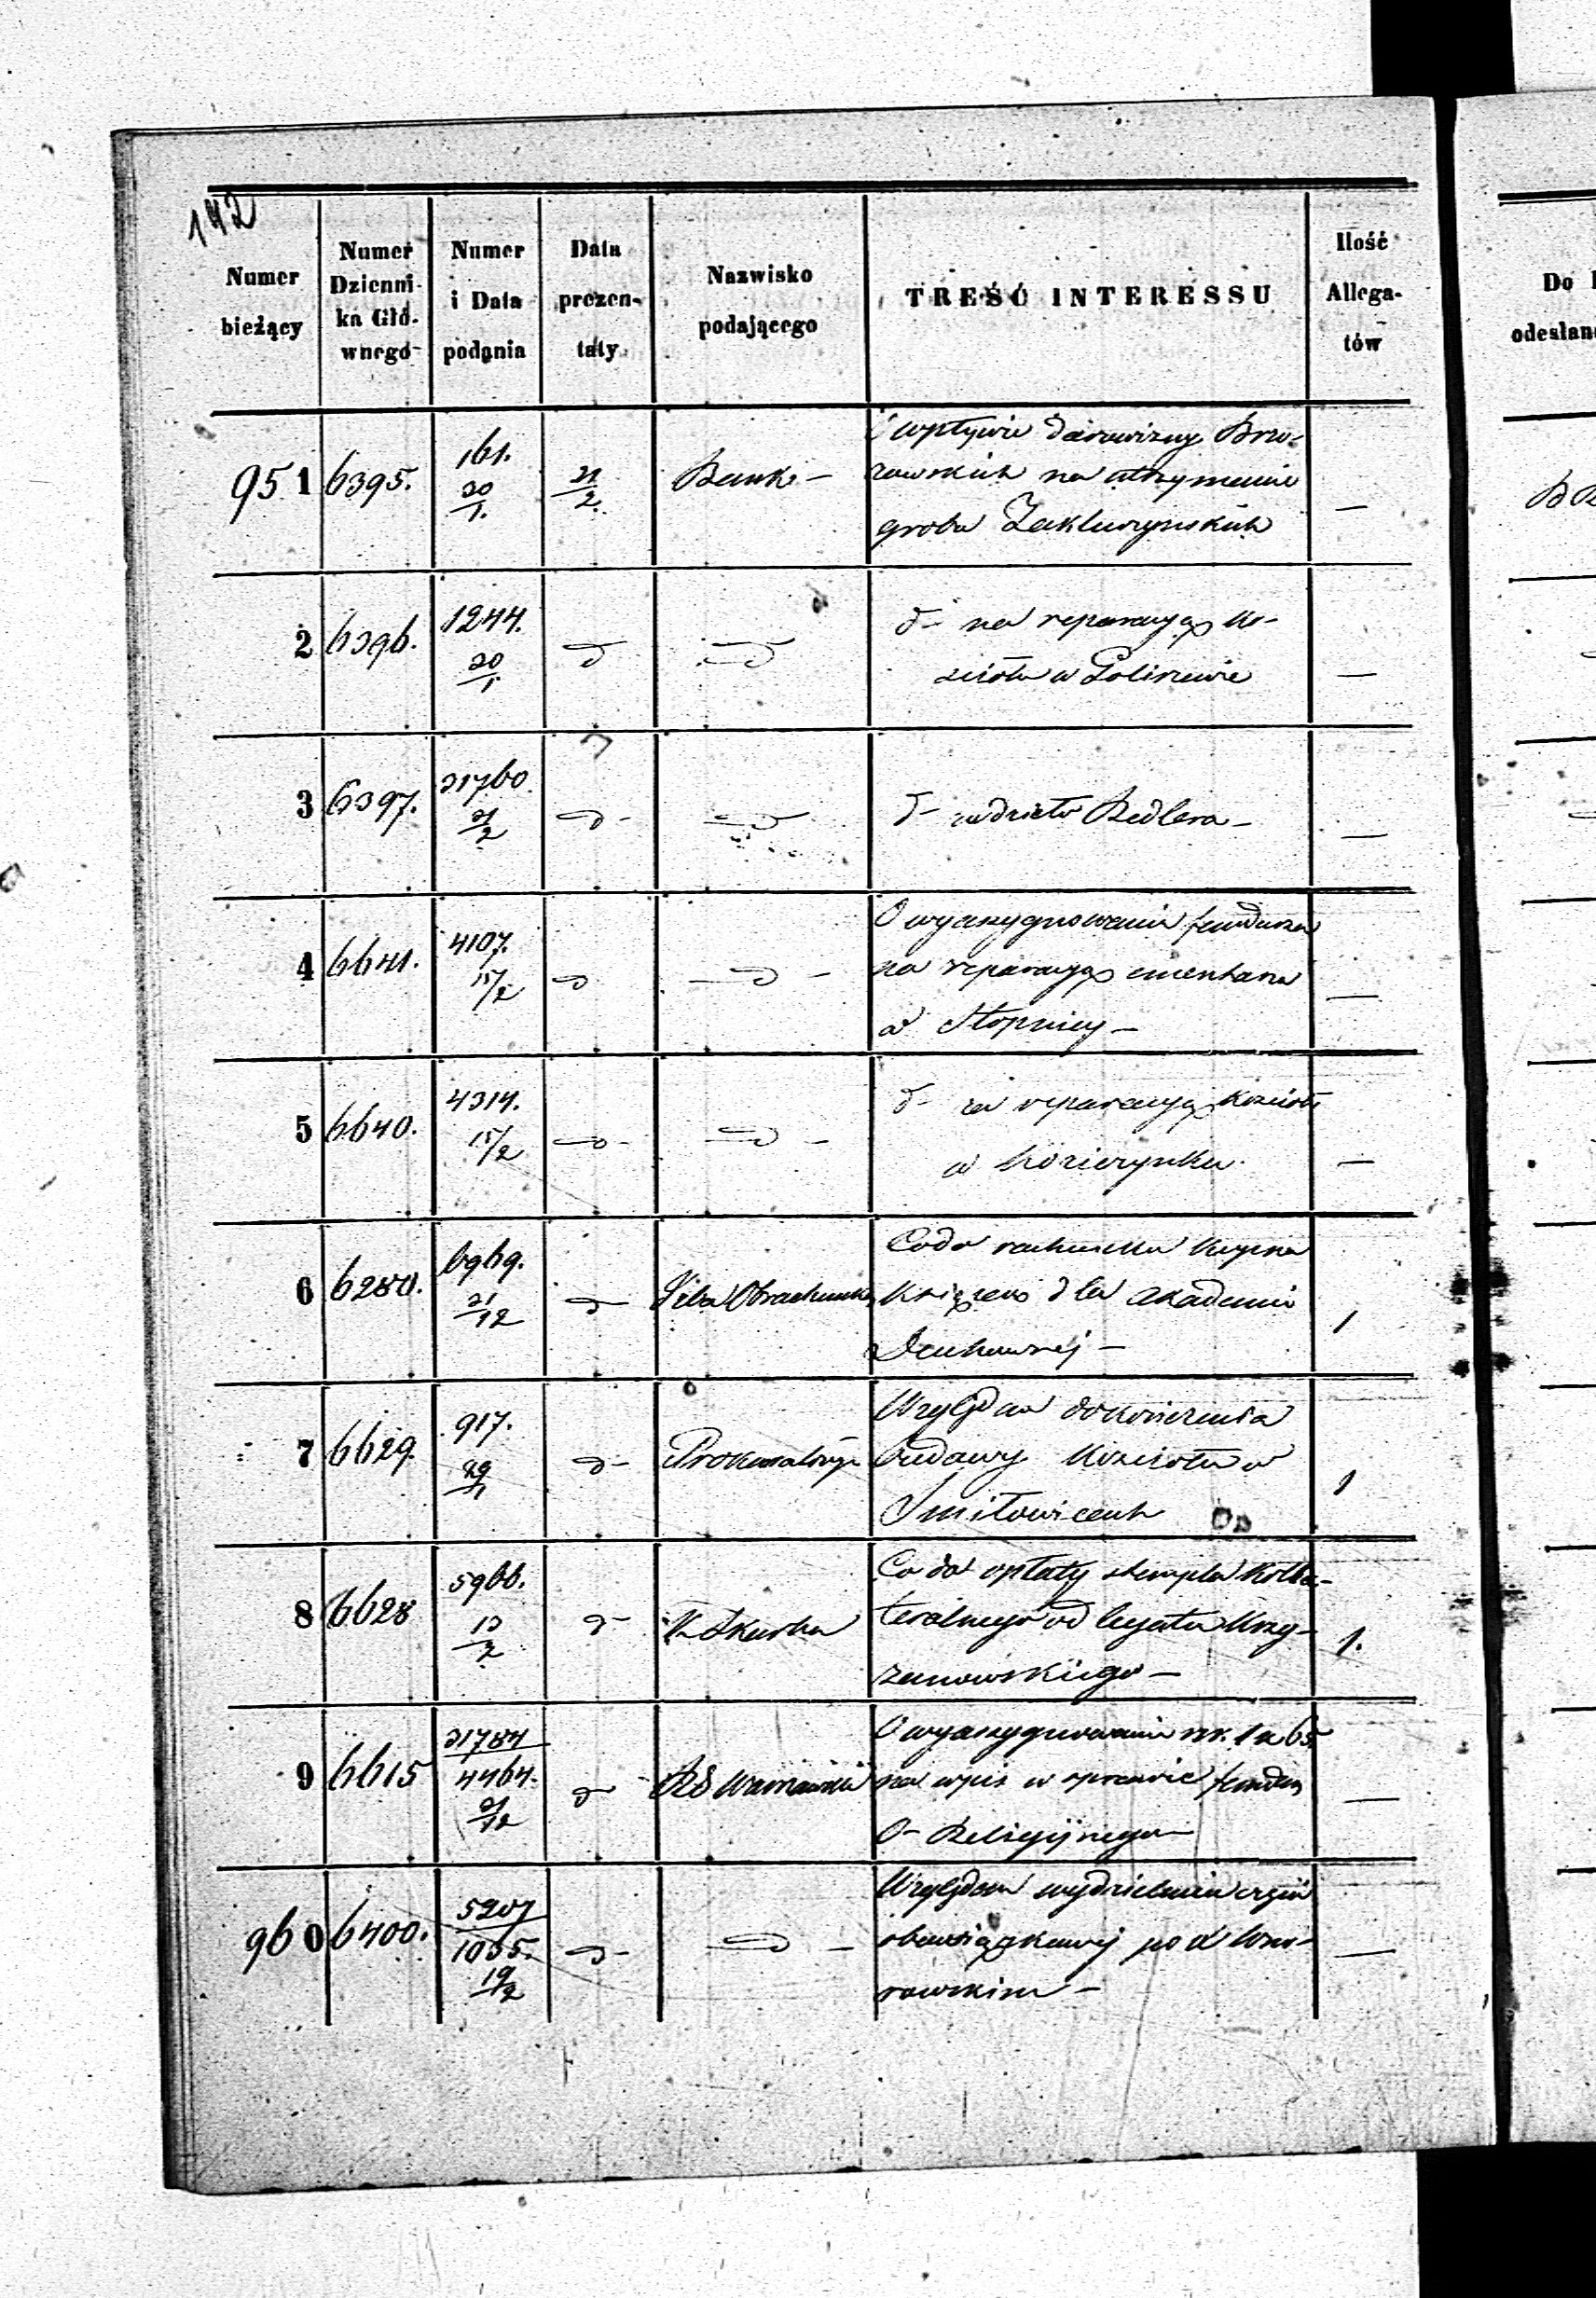 142
Numer
bieżący
Numer
Dzienni-
ka Głó-
wnego
Numer
i Data
podania
Data
prezen-
taty
Nazwisko
podającego
TREŚĆ INTERESSU
Ilość
Allega-
tów
Do
odesłan
951 6395. 161. 30/1. 21/2. Bank -
O wpływie darowizny Brzo-
zowskich na utrzymanie
grobu Zakluczyńskich —
2 6396. 1244. 30/1 d d
d- na reparacyą ko-
ścioła w Goliszewie —
3 6397. 31760. 31/2 d- d
d- za dzieło Bedlera - —
4 6641. 4107. 15/2 d d -
O wyasygnowanie funduszu
na reparacyą cmentarza
w Stopnicy - —
5 6640. 4314. 15/2 d- d -
d- na reparacyą kościoła
w Kozierynku —
6 6280. 6969. 31/12 d Izba Obrachunk
Co do rachunku kupna
książek dla Akademii
Duchownej - 1
7 6629. 917. 29/1 d- Prokuratorya
Względem dokończenia
budowy kościoła w
Smiłowicach 1
8 6628 5966. 13/2 d- K. Skarbu
Co do opłaty stempla kolla-
teralnego od legatu Krzy-
żanowskiego - 1.
9 6615 31784 4464. 31/12 d RG Warszawski
O wyasygnowanie rsr. 1 k 65
na wpis w sprawie fundu
O- Religijnego —
960 6400. 5207 1035. 19/2 d- d -
Względem wydzielenia części
obowiązkowej po
rowskim - —